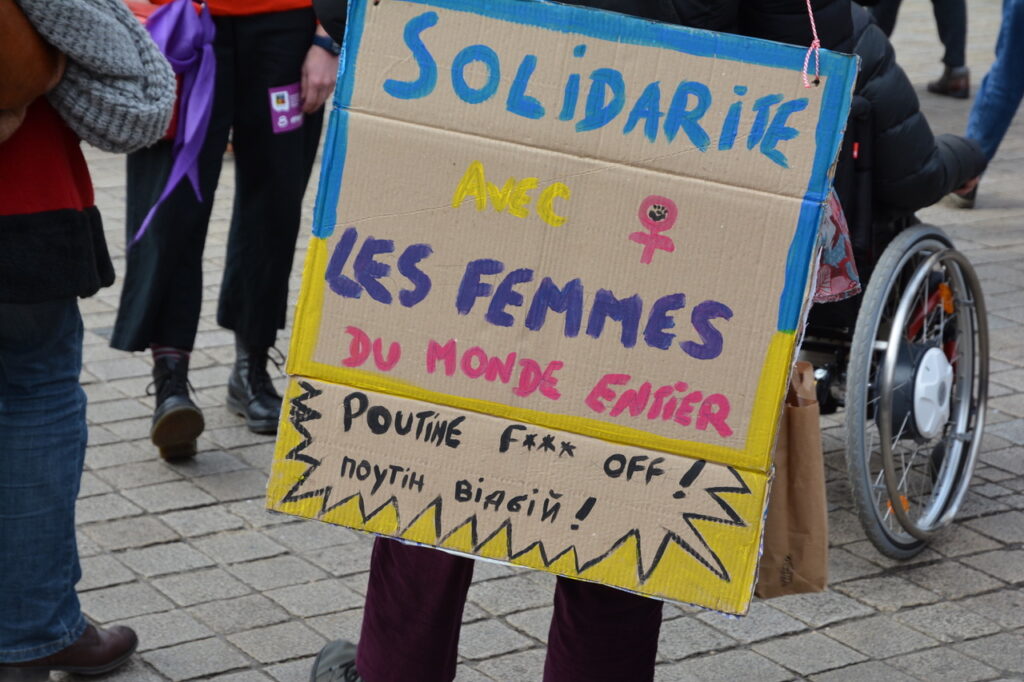 SOLIDARITE
AVEC
LES FEMMES
DU MONDE ENTIER
POUTINE F*** OFF !
ПОУТІН ВІДБІЙ !